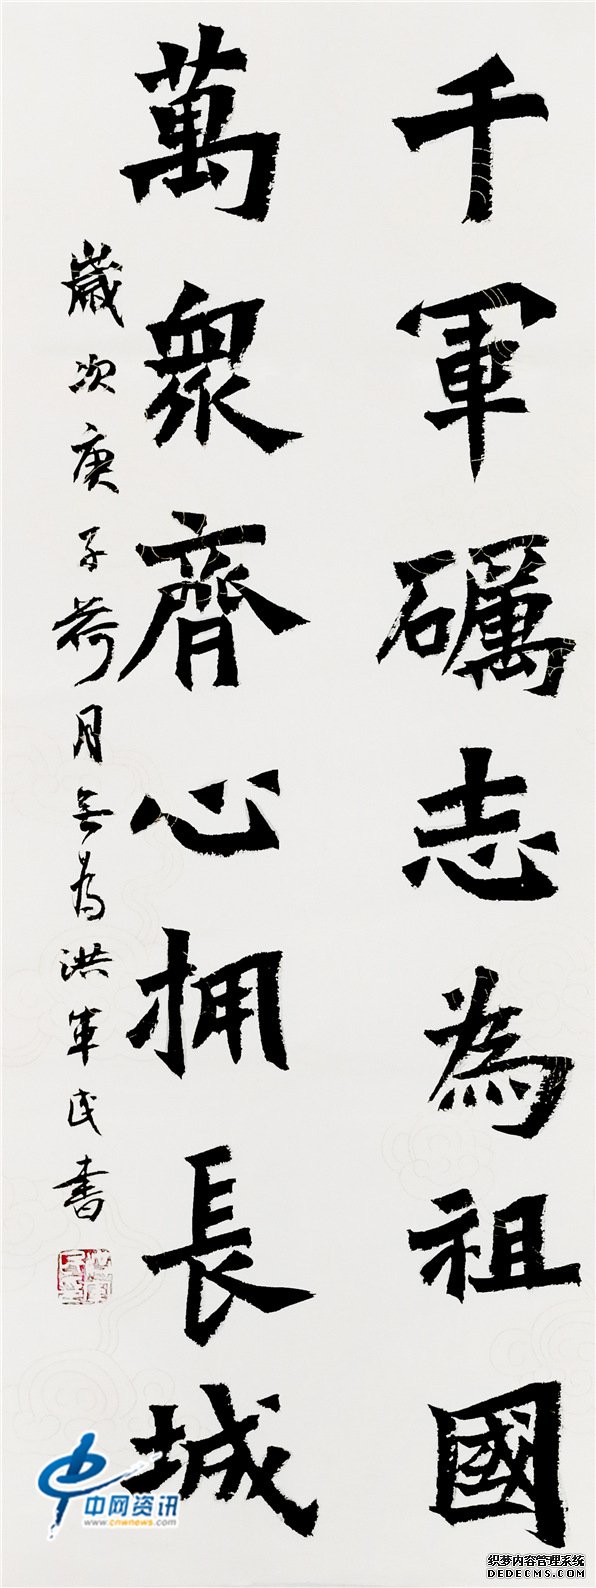 千軍礪志為祖國
萬衆齊心拥長城
歲次庚子荷月無為洪軍民書
中网资讯
www.cnwnews.com
织梦内容管理系统
DEDECMS.COM